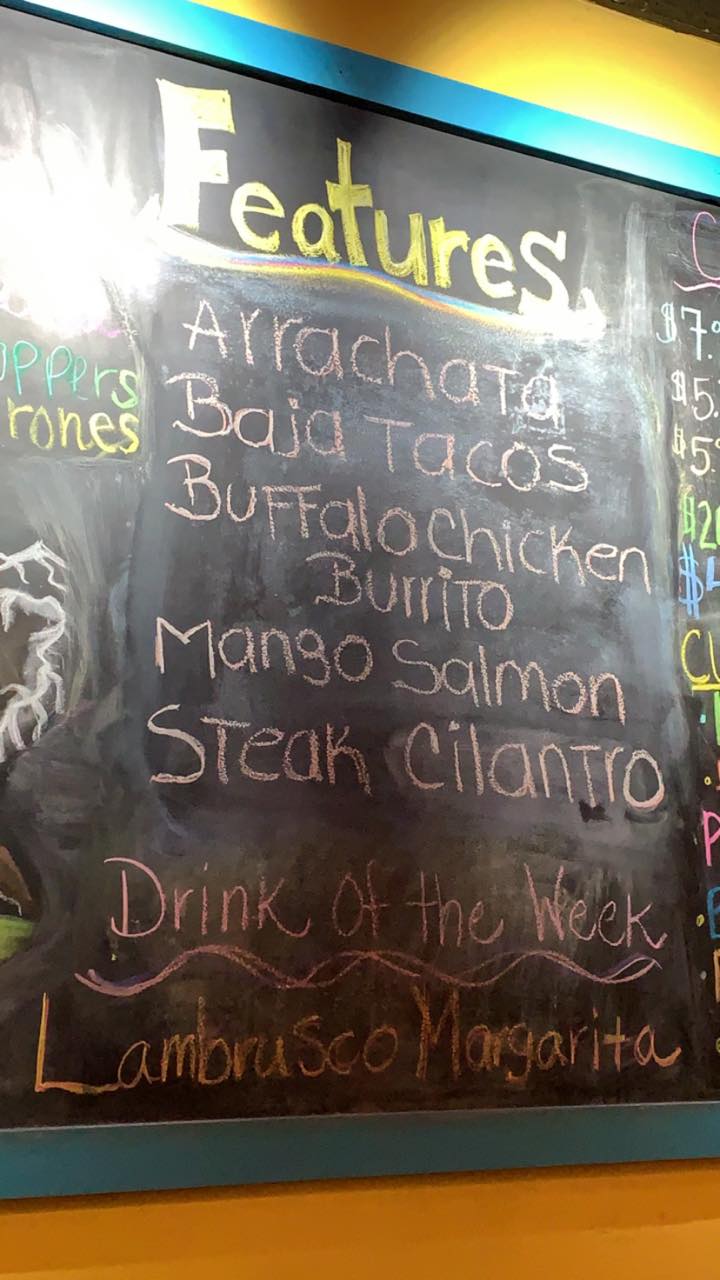 Features
Arrachata
Baja Tacos
Buffalo Chicken
Burrito
Mango Salmon
Steak Cilantro
Drink of the Week
Lambrusco Margarita